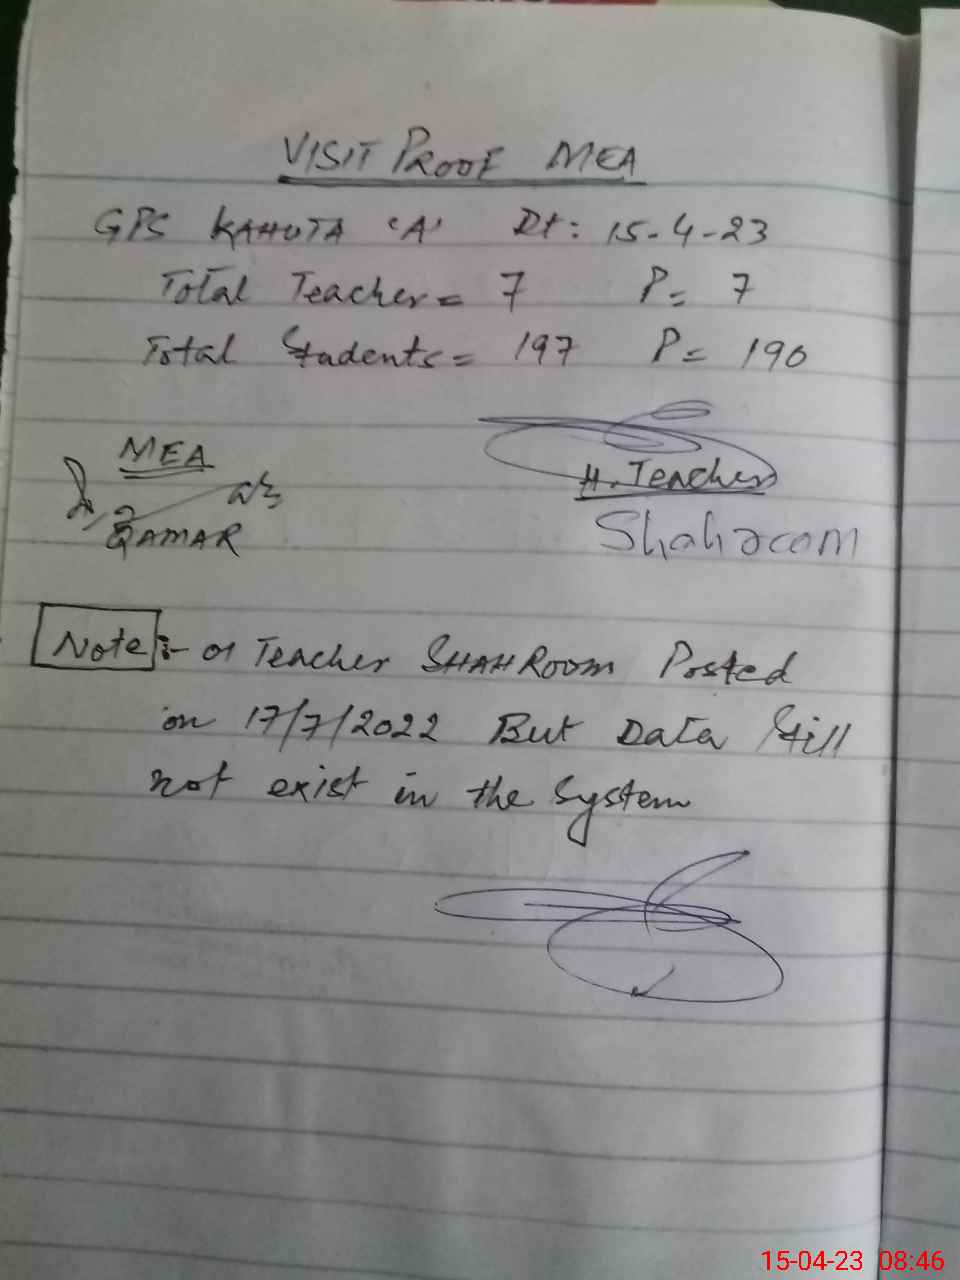 VISIT PROOF MEA
GPS KAHUTA 'A' Dt: 15-4-23
Total Teacher = 7 P = 7
Total Students = 197 P = 190
MEA
QAMAR
H. Teacher
Shahroom
Note :- 01 Teacher SHAHROOM Posted
on 17/7/2022 But Data Still
not exist in the System
15-04-23 08:46